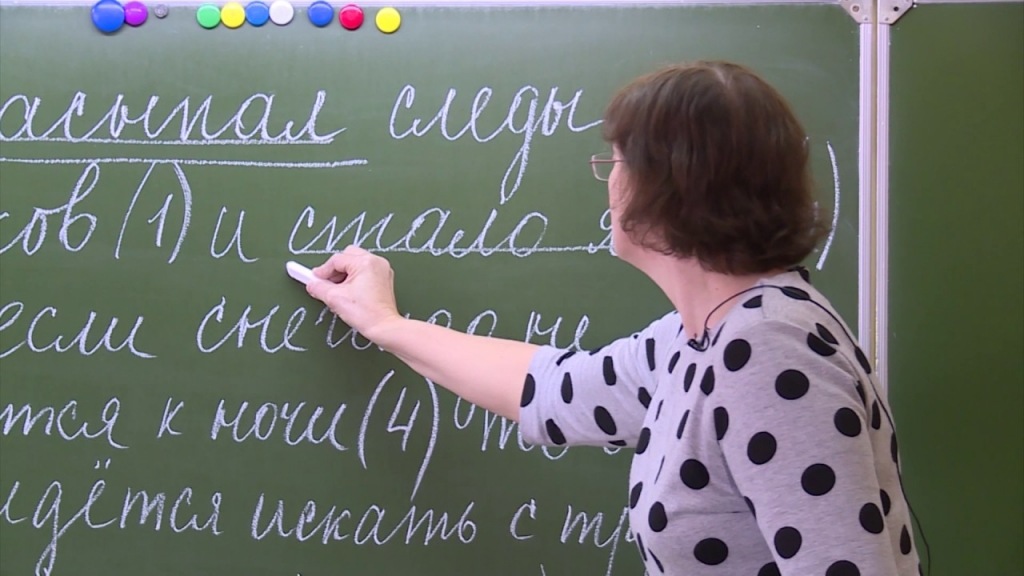 асыпал следы
ов (1) и стало
если
тся к ночи (4)
дётся искать с